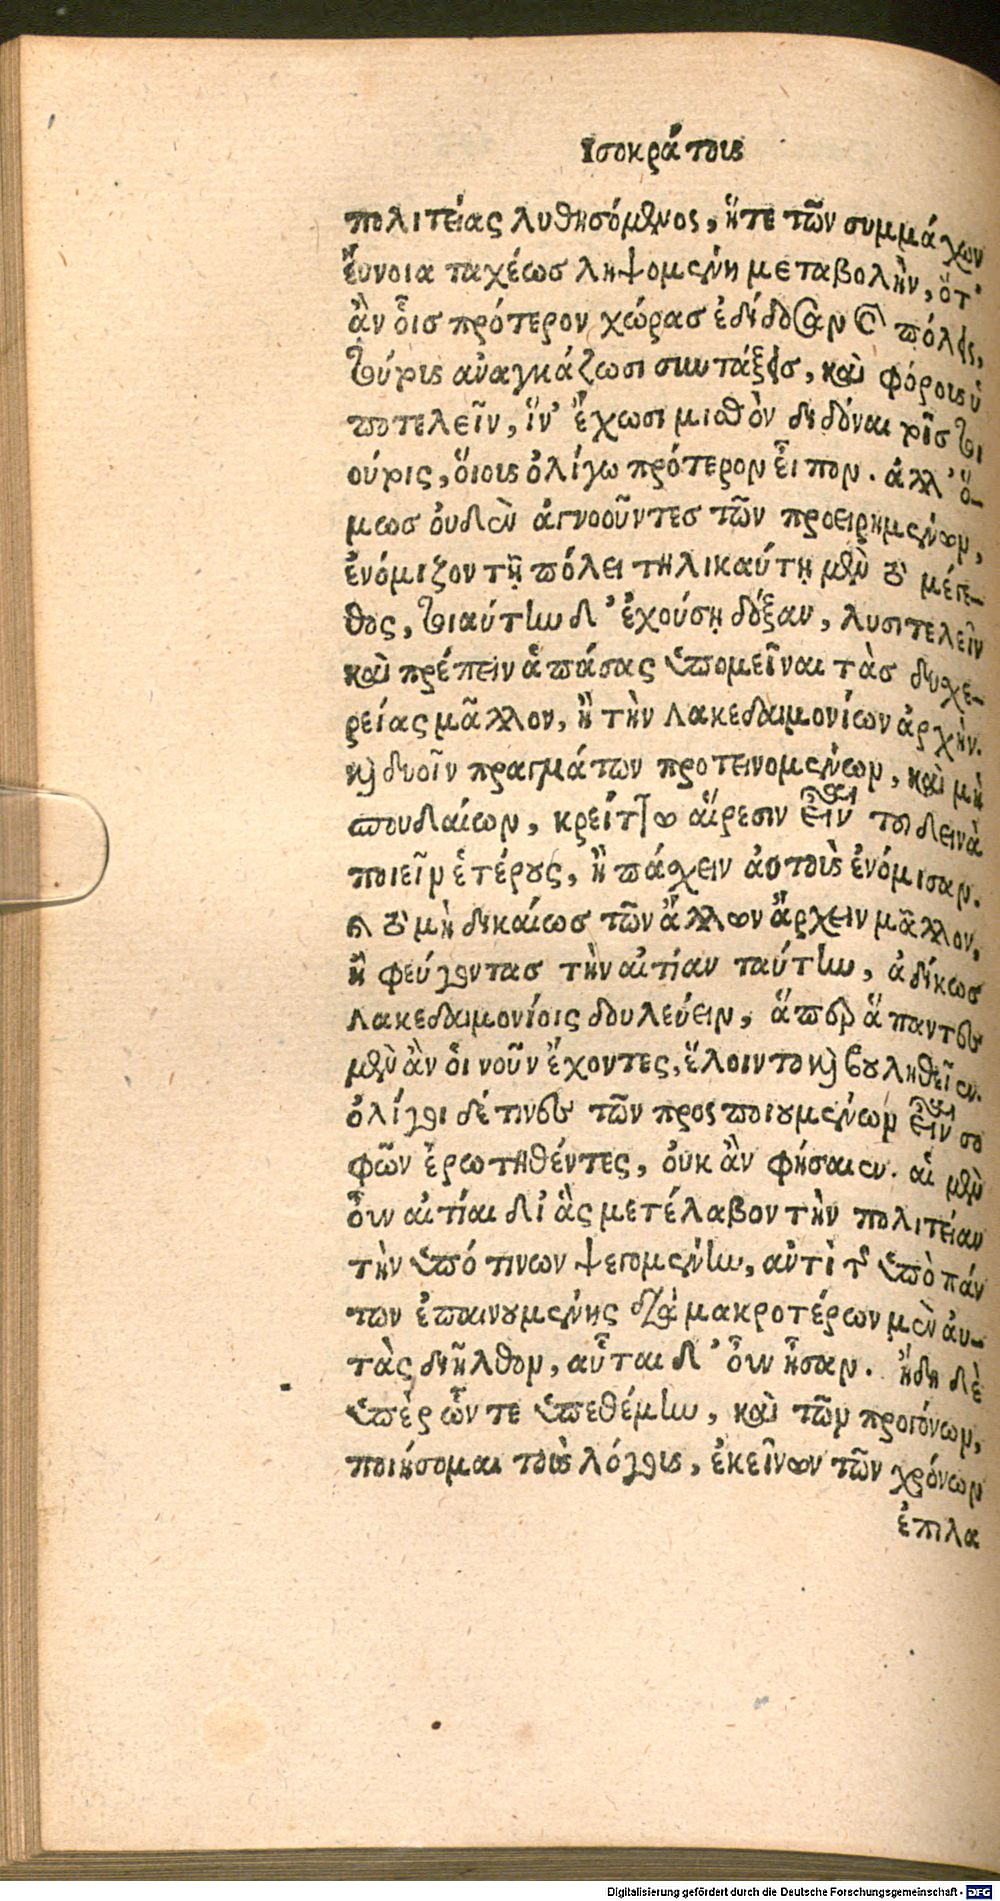 Ισοκράτους
πολιτείας λυθησόμενος, ἥτε τῶν συμμάχων
ἔυνοια ταχέωσ ληψομένη μεταβολὴν, ὅτ'
ἂν οἷσ πρότερον χώρασ ἐδίδοσαν καὶ πόλεις,
τούτους ἀναγκάζωσι συντάξεις, καὶ φόρους ὑ
ποτελεῖν, ἵν' ἔχωσι μισθὸν διδόναι τοῖσ τοι
ούτοις, ὅιους ὀλίγω πρότερον εἶπον. ἀλλ' ὅ-
μωσ ὀυδὲν ἀγνοοῦντεσ τῶν προειρημένων,
ἐνόμιζον τῇ πόλει τηλικαύτῃ μὲν τὸ μέγε-
θος, τοιαύτην δ' ἐχούσῃ δόξαν, λυσιτελεῖν
καὶ πρέπειν ἁπάσας ὑπομεῖναι τὰσ δυχε-
ρείας μᾶλλον, ἢ τὴν Λακεδαιμονίων ἀρχήν.
καὶ δυοῖν πραγμάτων προτεινομένων, καὶ μὴ
σπουδαίων, κρείττω αἵρεσιν εἶναι τοῦ δεινὰ
ποιεῖν ἑτέρους, ἢ πάσχειν ἀυτοὺς ἐνόμισαν.
καὶ τὸ μὴ δικαίωσ τῶν ἄλλων ἄρχειν μᾶλλον,
ἢ φεύγοντασ τὴν αἰτίαν ταύτην, ἀδίκωσ
Λακεδαιμονίοις δουλεύειν, ἅπερ ἅπαντες
μὲν ἂν ὁι νοῦν ἔχοντες, ἕλοιντο καὶ βουληθεῖεν.
ὀλίγοι δέ τινες τῶν προςποιουμένων εἶναι σο
φῶν ἐρωτηθέντες, ὀυκ ἂν φήσαιεν. αἱ μὲν
οὖν αἰτίαι δι' ἃς μετέλαβον τὴν πολιτείαν
τὴν ὑπό τινων ψεγομένην, ἀντὶ τῆς ὑπὸ πάν
των ἐπαινουμένης διὰ μακροτέρων μὲν ἀυ-
τὰς διῆλθον, αὗται δ' οὖν ἦσαν. ἤδη δὲ
ὑπὲρ ὧν τε ὑπεθέμην, καὶ τῶν προγόνων,
ποιήσομαι τοὺς λόγους, ἐκείνων τῶν χρόνων
ἐπιλα
Digitalisierung gefördert durch die Deutsche Forschungsgemeinschaft - DFG